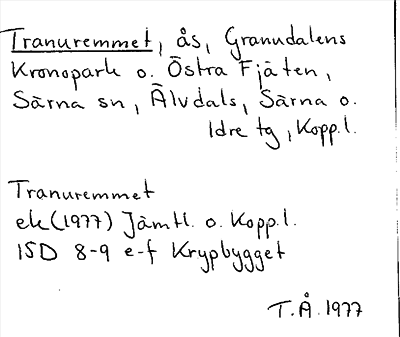 Tranuremmet, ås, Granudalens
Kronopark o. Östra Fjäten,
Särna sn, Älvdals, Särna o.
Idre tg, Kopp.l.
Tranuremmet
ek (1977) Jämtl. o. Kopp.l.
15D 8-9 e-f Krypbygget
T.Å. 1977